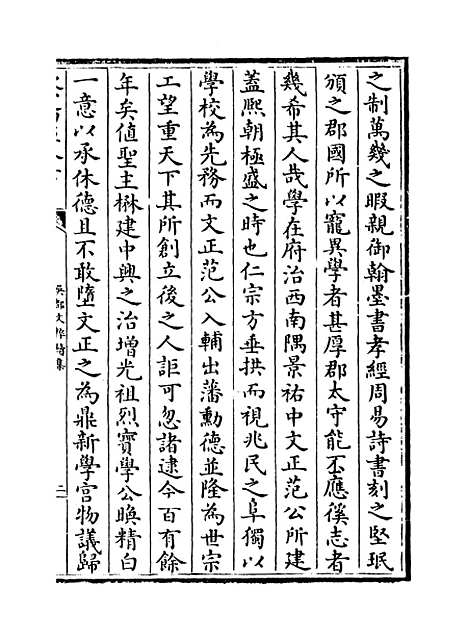 之制萬幾之暇親御翰墨書孝經周易詩書刻之堅珉
頒之郡國所以寵異學者甚厚郡太守能丕應徯志者
幾希其人哉學在府治西南隅景祐中文正范公所建
蓋熈朝極盛之時也仁宗方垂拱而視兆民之阜獨以
學校為先務而文正范公入輔出藩勳德並隆為世宗
工望重天下其所創立後之人詎可忽諸逮今百有餘
年矣值聖主楙建中興之治增光祖烈寳學公暎精白
一意以承休德且不敢墮文正之為鼎新學宫物議歸
吳都文粹續集
二